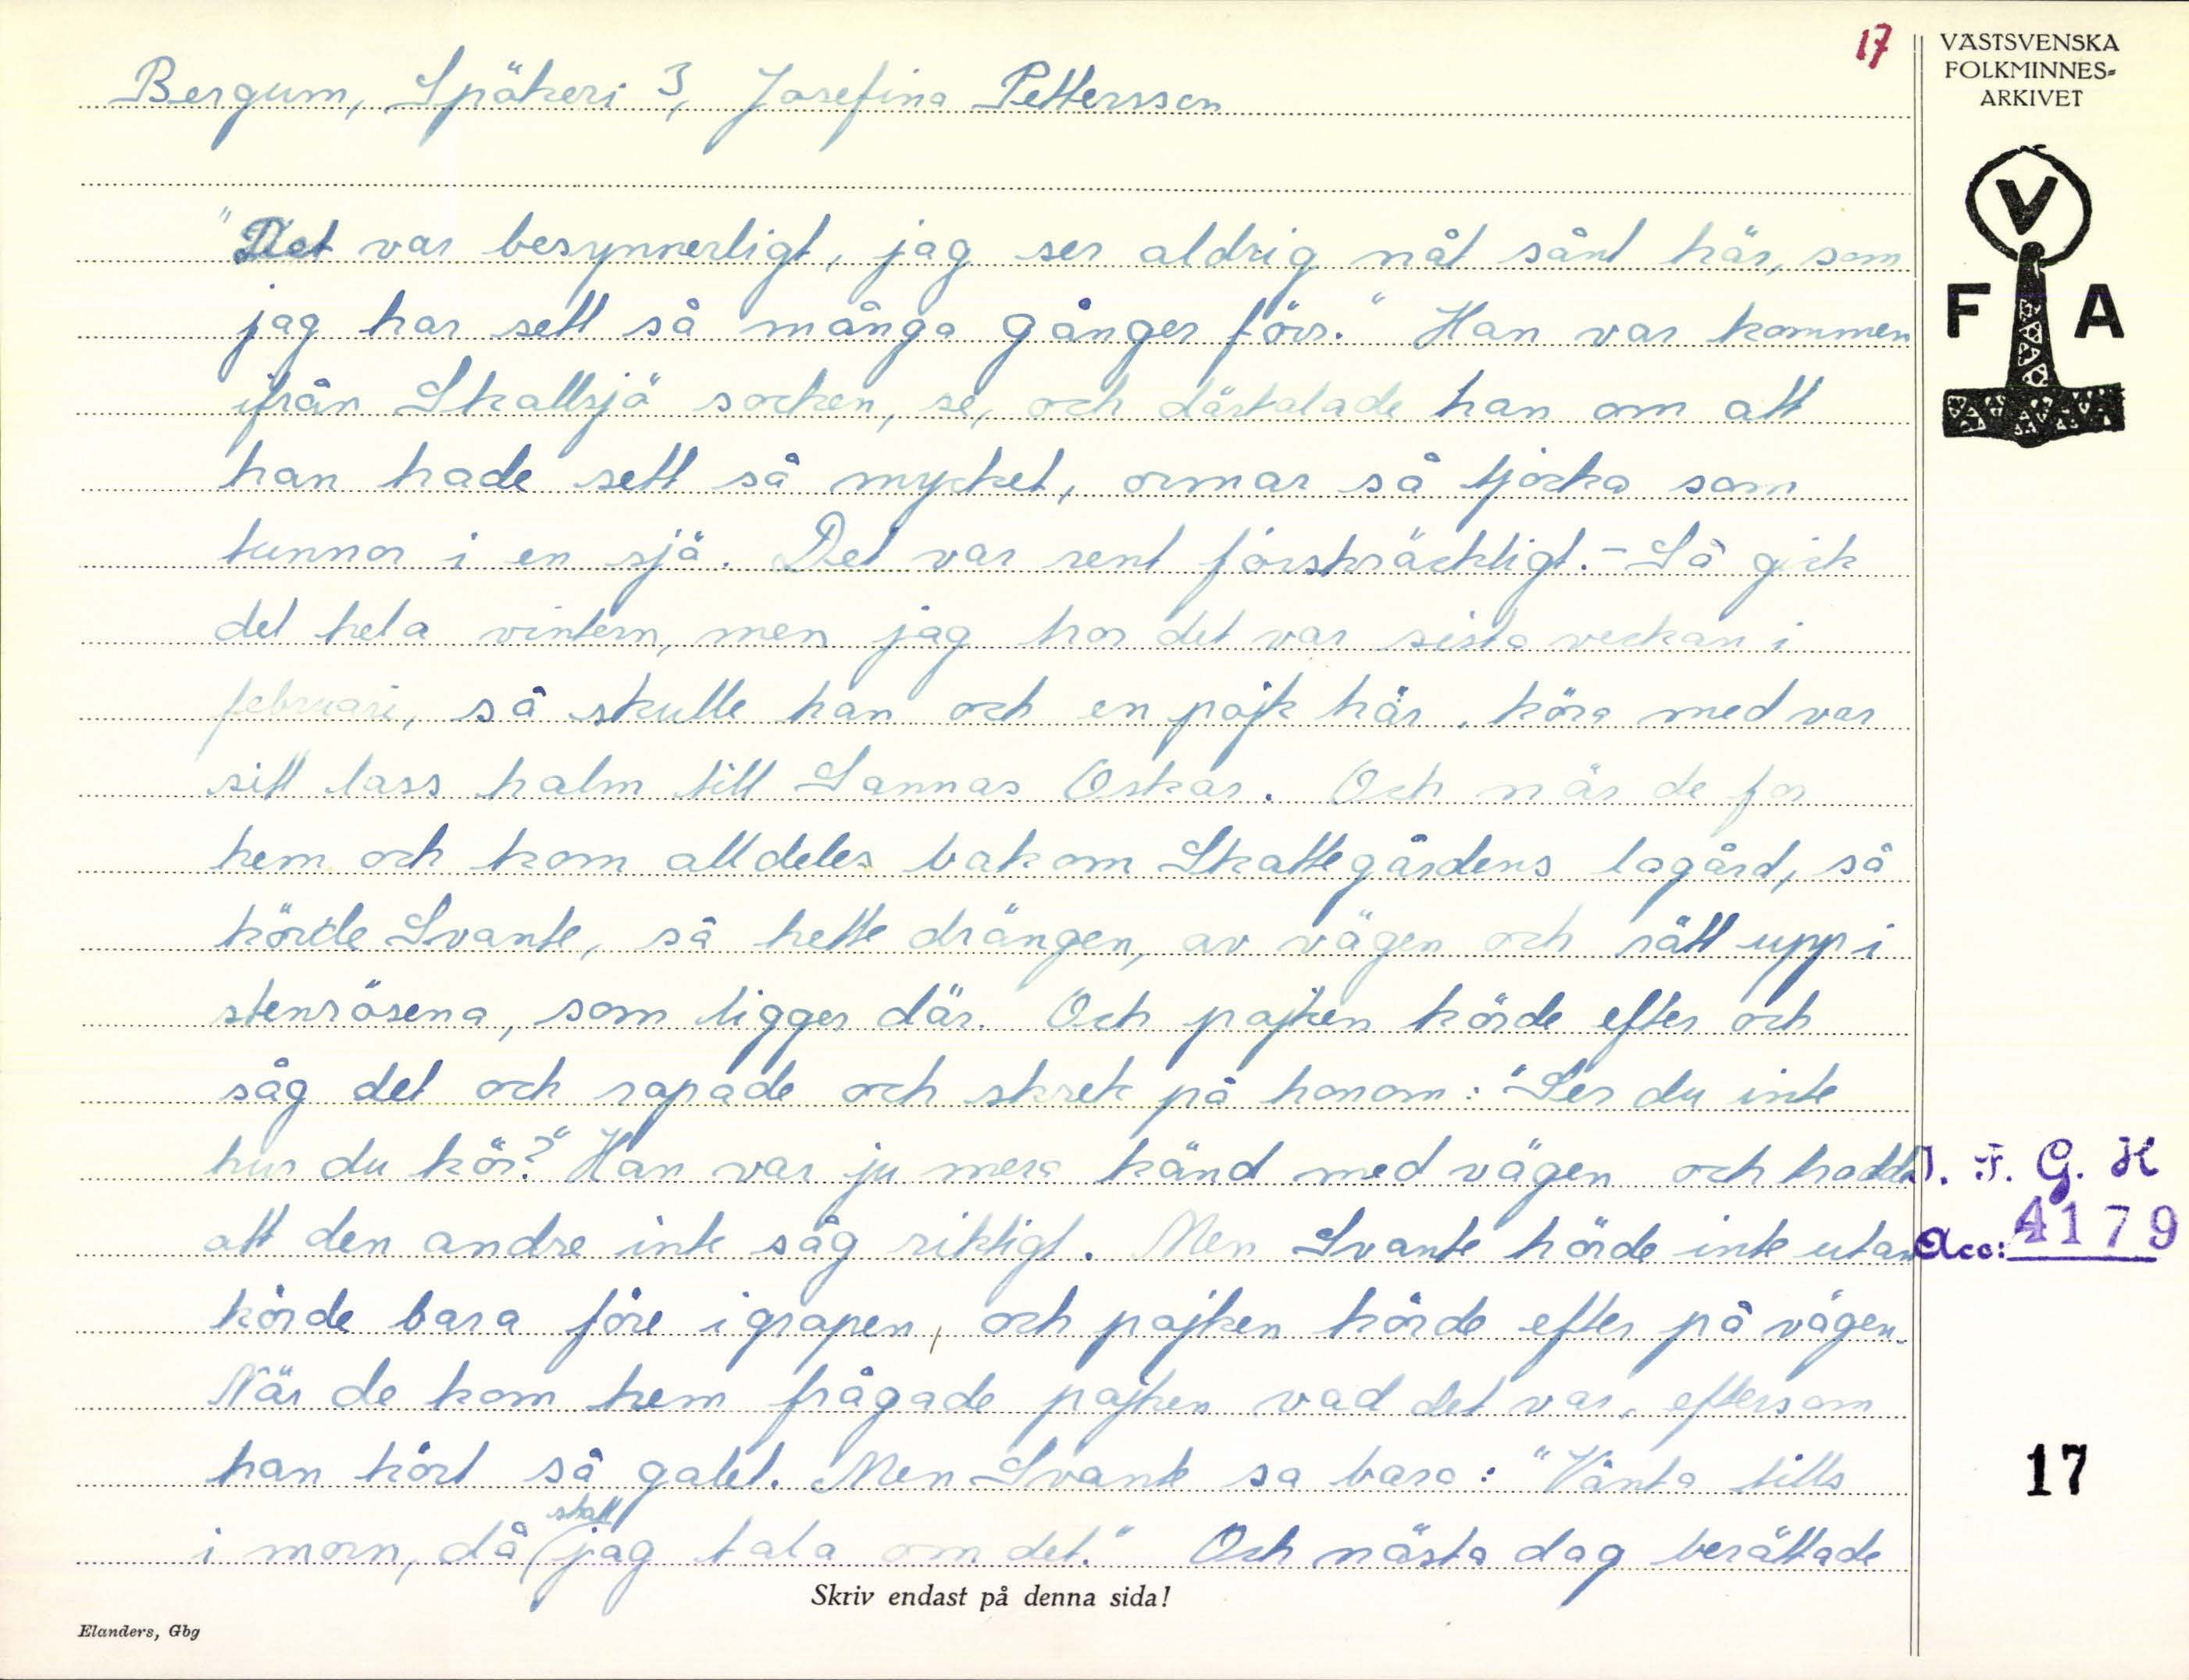 17
VÄSTSVENSKA
FOLKMINNES-
ARKIVET
V
F A
Bergum, Spåkeri 3, Josefina Pettersson
"Det var besynnerligt, jag ser aldrig nåt sånt här, som
jag har sett så många gånger förr." Han var kommen
ifrån Skallsjö socken, se, och där talade han om att
han hade sett så mycket, ormar så tjocka som
tunnor i en sjö. Det var rent förskräckligt. - Så gick
det hela vintern, men jag tror det var sista veckan i
februari, så skulle han och en pojk här, köra med var
sitt lass halm till Sannas Oskar. Och när de for
hem och kom alldeles bakom Skattegårdens lagård, så
körde Svante, så hette drängen, av vägen och rätt upp i
stenrösena, som ligger där. Och pojken körde efter och
såg det och ropade och skrek på honom: "Ser du inte
hur du kör?" Han var ju mera känd med vägen och trodde
att den andre inte såg riktigt. Men Svante hörde inte utan
körde bara före i gropen, och pojken körde efter på vägen.
När de kom hem frågade pojken vad det var, eftersom
han kört så galet. Men Svante sa bara: "Vänta tills
i morn, då skall jag tala om det." Och nästa dag berättade
I. F. G. H
Acc: 4179
17
Skriv endast på denna sida!
Elanders, Gbg